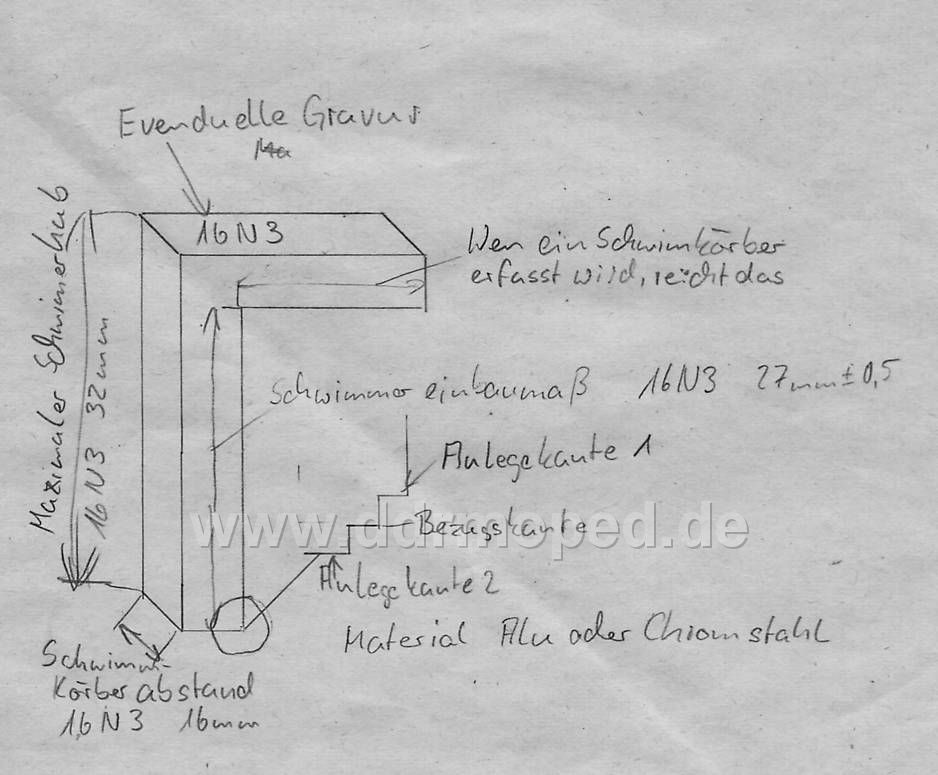 Evenduelle Gravur
16N3
Wen ein Schwimkörber
erfasst wird, reicht das
Maximaler Schwimerhub
16N3 32mm
Schwimmer einbaumaß 16N3 27mm ± 0,5
Anlegekante 1
www.ddrmoped.de
Bezugskante
Anlegekante 2
Material Alu oder Chromstahl
Schwimm-
Körber abstand
16N3 16mm